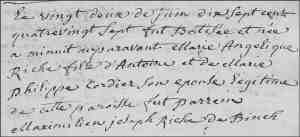 Le vingt deux de juin dix sept cent
quatrevingt sept fut Batisée et née
a minuit auparavant Marie Angelique
Riche fille d'Antoine et de Marie
philippe Cordier son epouse legitime
de cette paroisse fut Parrein
Maximilien joseph Riche de Binch